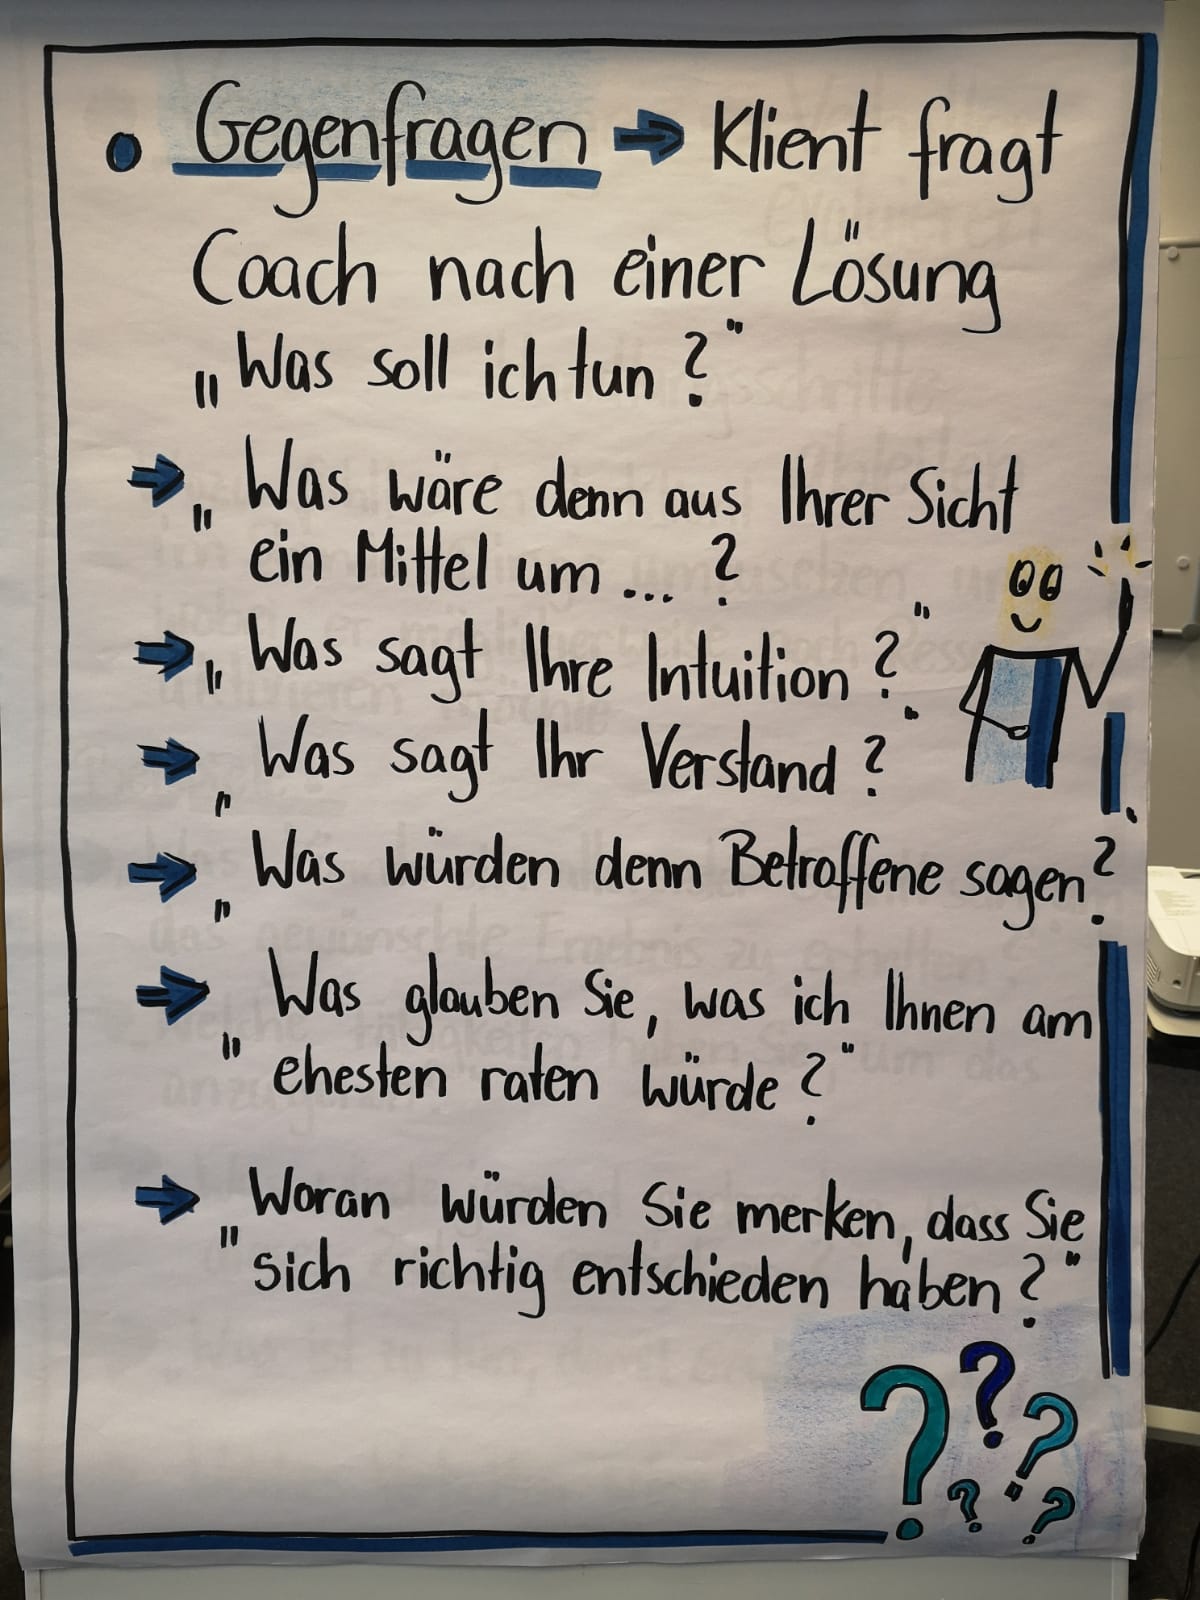 • Gegenfragen ➔ Klient fragt
Coach nach einer Lösung
„Was soll ich tun?"
➔ „Was wäre denn aus Ihrer Sicht
ein Mittel um ... ?"
➔ „Was sagt Ihre Intuition?
➔ „Was sagt Ihr Verstand?
➔ „Was würden denn Betroffene sagen?
➔ „Was glauben Sie, was ich Ihnen am
ehesten raten würde?"
➔ „Woran würden Sie merken, dass Sie
sich richtig entschieden haben?"
? ? ? ? ?